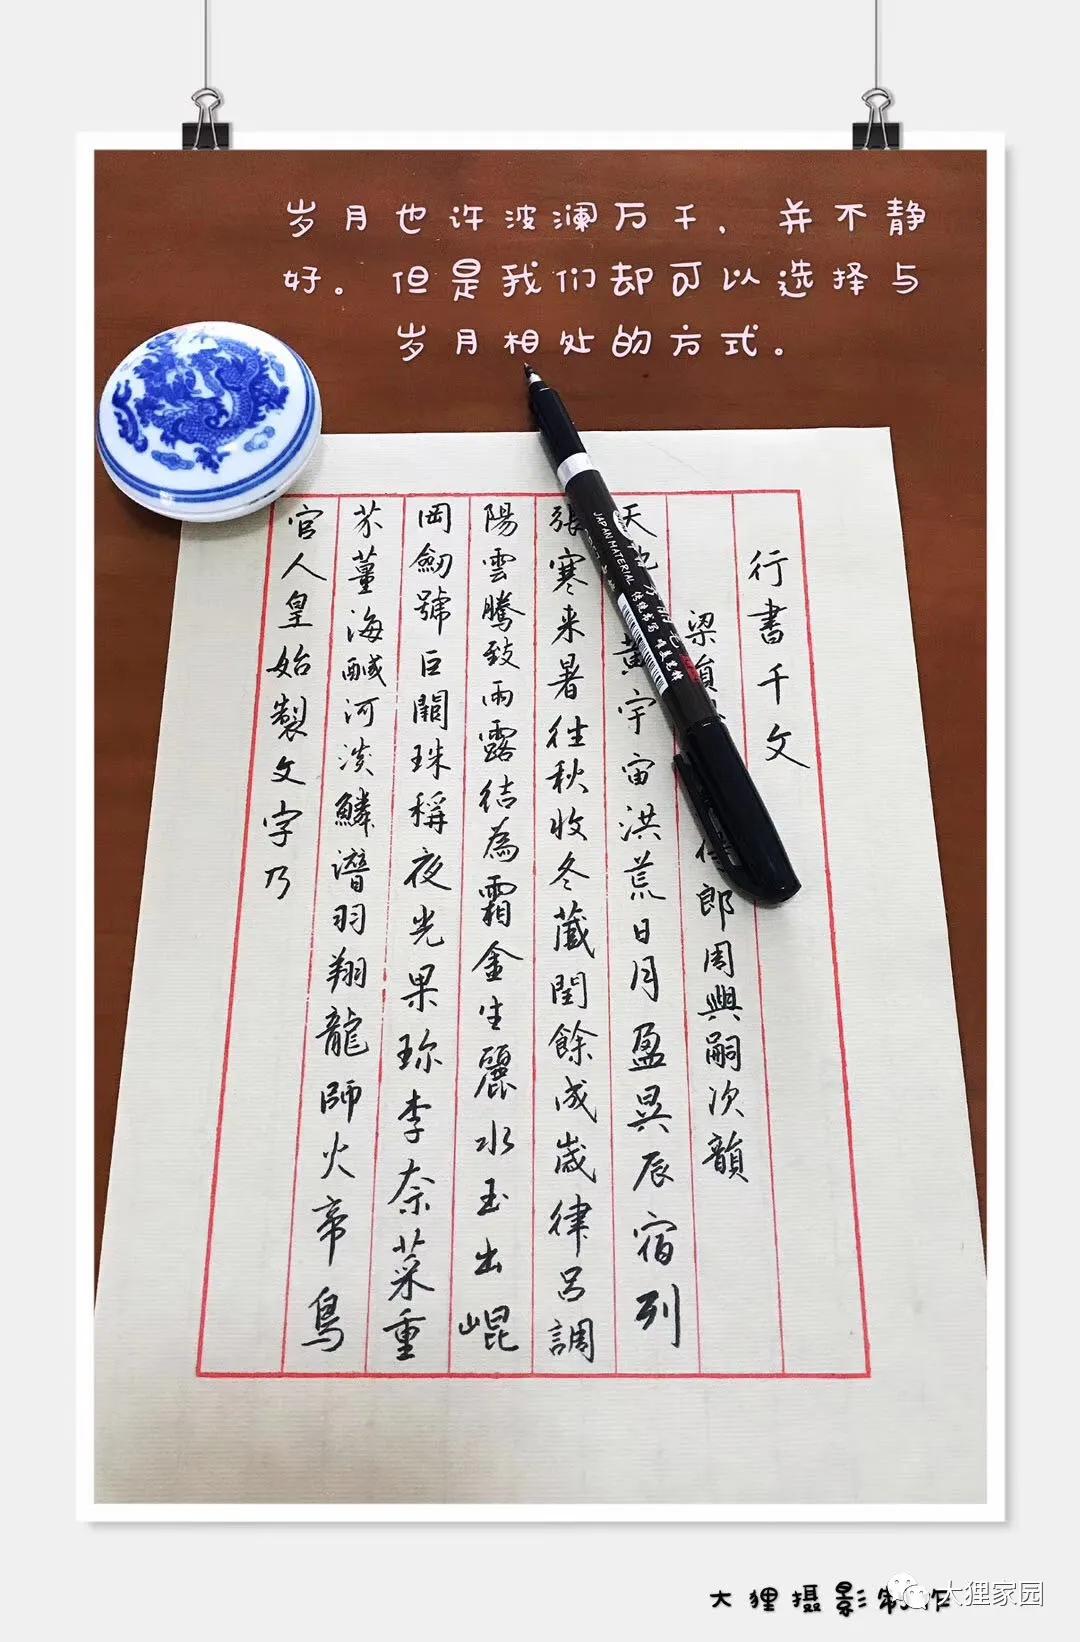 岁月也许波澜万千，并不静
好。但是我们却可以选择与
岁月相处的方式。
行書千文
梁員郎周興嗣次韻
天黄宇宙洪荒日月盈昃辰宿列
張寒来暑往秋收冬藏閏餘成歲律呂調
陽雲騰致雨露結為霜金生麗水玉出崐
岡劒號巨闕珠稱夜光果珎李柰菜重
芥薑海鹹河淡鱗潛羽翔龍師火帝鳥
官人皇始製文字乃
JAPAN MATERIAL
大狸摄影制作
大狸家园